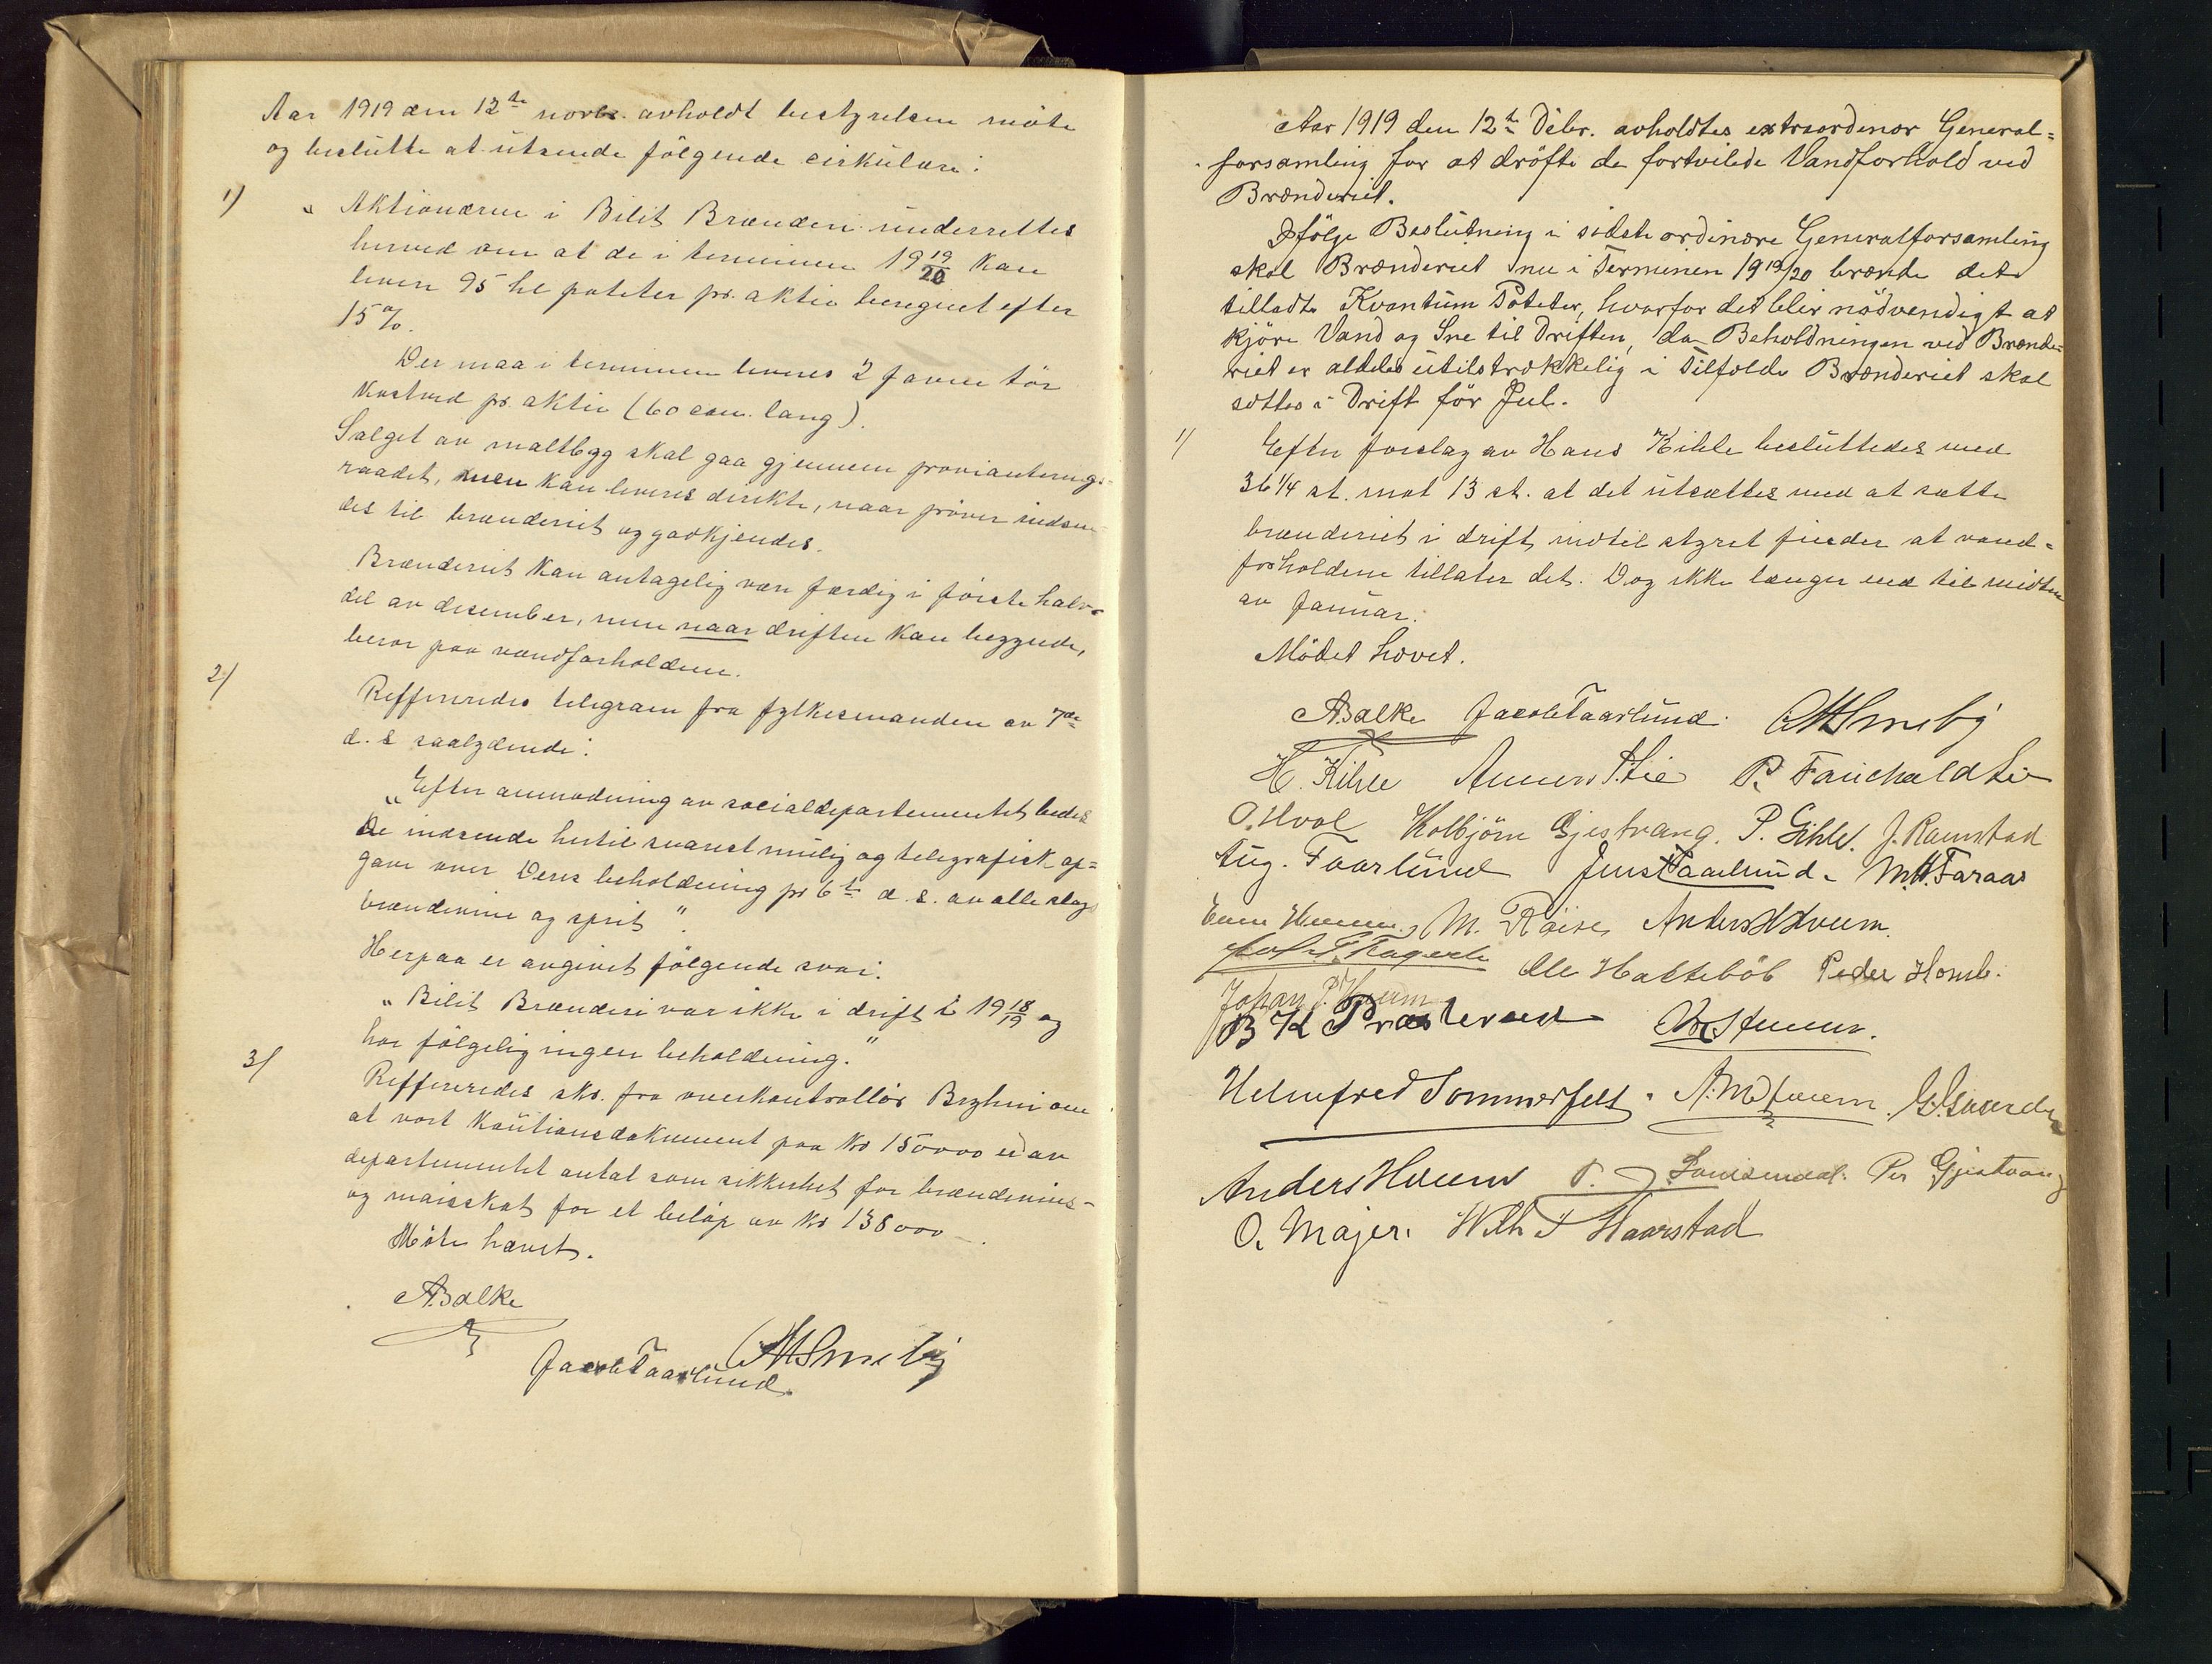 Aar 1919 den 12te novbr. avholdt bestyrelsen möte
og beslutte at utsende fölgende cirkulære:
1)
„Aktionærene i Bilit Brænderi underrettes
herved om at de i terminen 19 19/20 kan
levere 95 hl poteter pr. aktie beregnet efter
15 %.
Der maa i terminen leveres 2 favne tör
kastved pr. aktie (60 cm. lang).
Salget av maltbygg skal gaa gjennem provianterings-
raadet, men kan leveres direkte, naar pröver indsen-
des til brænderiet og godkjendes.
Brænderiet kan antagelig være færdig i förste halv-
del av desember, men naar driften kan begynde,
beror paa vandforholdene.
2)
Reffereredes telegram fra fylkesmanden av 7de
d. s saalydende:
„Efter anmodning av socialdepartementet bedes
De indsende hertil snarest mulig og telegrafisk op=
gave over Deres beholdning pr 6te d. s. av alle slags
brændevine og sprit"
Herpaa er avgivet fölgende svar:
„Bilit Brænderi var ikke i drift i 19 18/19 og
har fölgelig ingen beholdning."
3)
Reffereredes skr. fra overkontrollör Bryhni om
at vort kautionsdokument paa kr 150000 er av
departementet antat som sikkerhet for brændevins-
og maisskat for et belöp av kr 138000.
Möte hævet.
A Balke
Jacob Taarlund AHSmeby
Aar 1919 den 12te Debr. avholdtes extraordenær General=
forsamling for at dröfte de fortvilede Vandforhold ved
Brænderiet.
Ifölge Beslutning i sidste ordinære Generalforsamling
skal Brænderiet nu i Terminen 19 19/20 brænde det
tilladte Kvantum Poteter, hvorfor det blir nödvendigt at
kjöre Vand og Sne til Driften, da Beholdningen ved Brænde-
riet er aldeles utilstrækkelig i Tilfælde Brænderiet skal
sættes i Drift för Jul.
1)
Efter forslag av Hans Kihle besluttedes med
36 1/4 st. mot 13 st. at det utsættes med at sætte
brænderiet i drift indtil styret finder at vand=
forholdene tillater det. Dog ikke længer end til midten
av Januar.
Mödet hævet.
A Balke Jacob Taarlund. AHSmeby
H. Kihle P. Fauchald
O. Hval Kolbjörn Gjestvang. P. Gihle. J. Ramstad
Aug. Faarlund Jens Taarlund. M.H. Faraas
Even Hveem, M. Röise, Anders H Hveem.
Ole Hatteböl Peder Homb.
Johan P. Hveem
B K Præsterud
Helmfred Sommerfelt. A. M Hveem.
Anders Hveem P. J Louisendal. Per Gjestvang
O. Majer. Wilh Haarstad